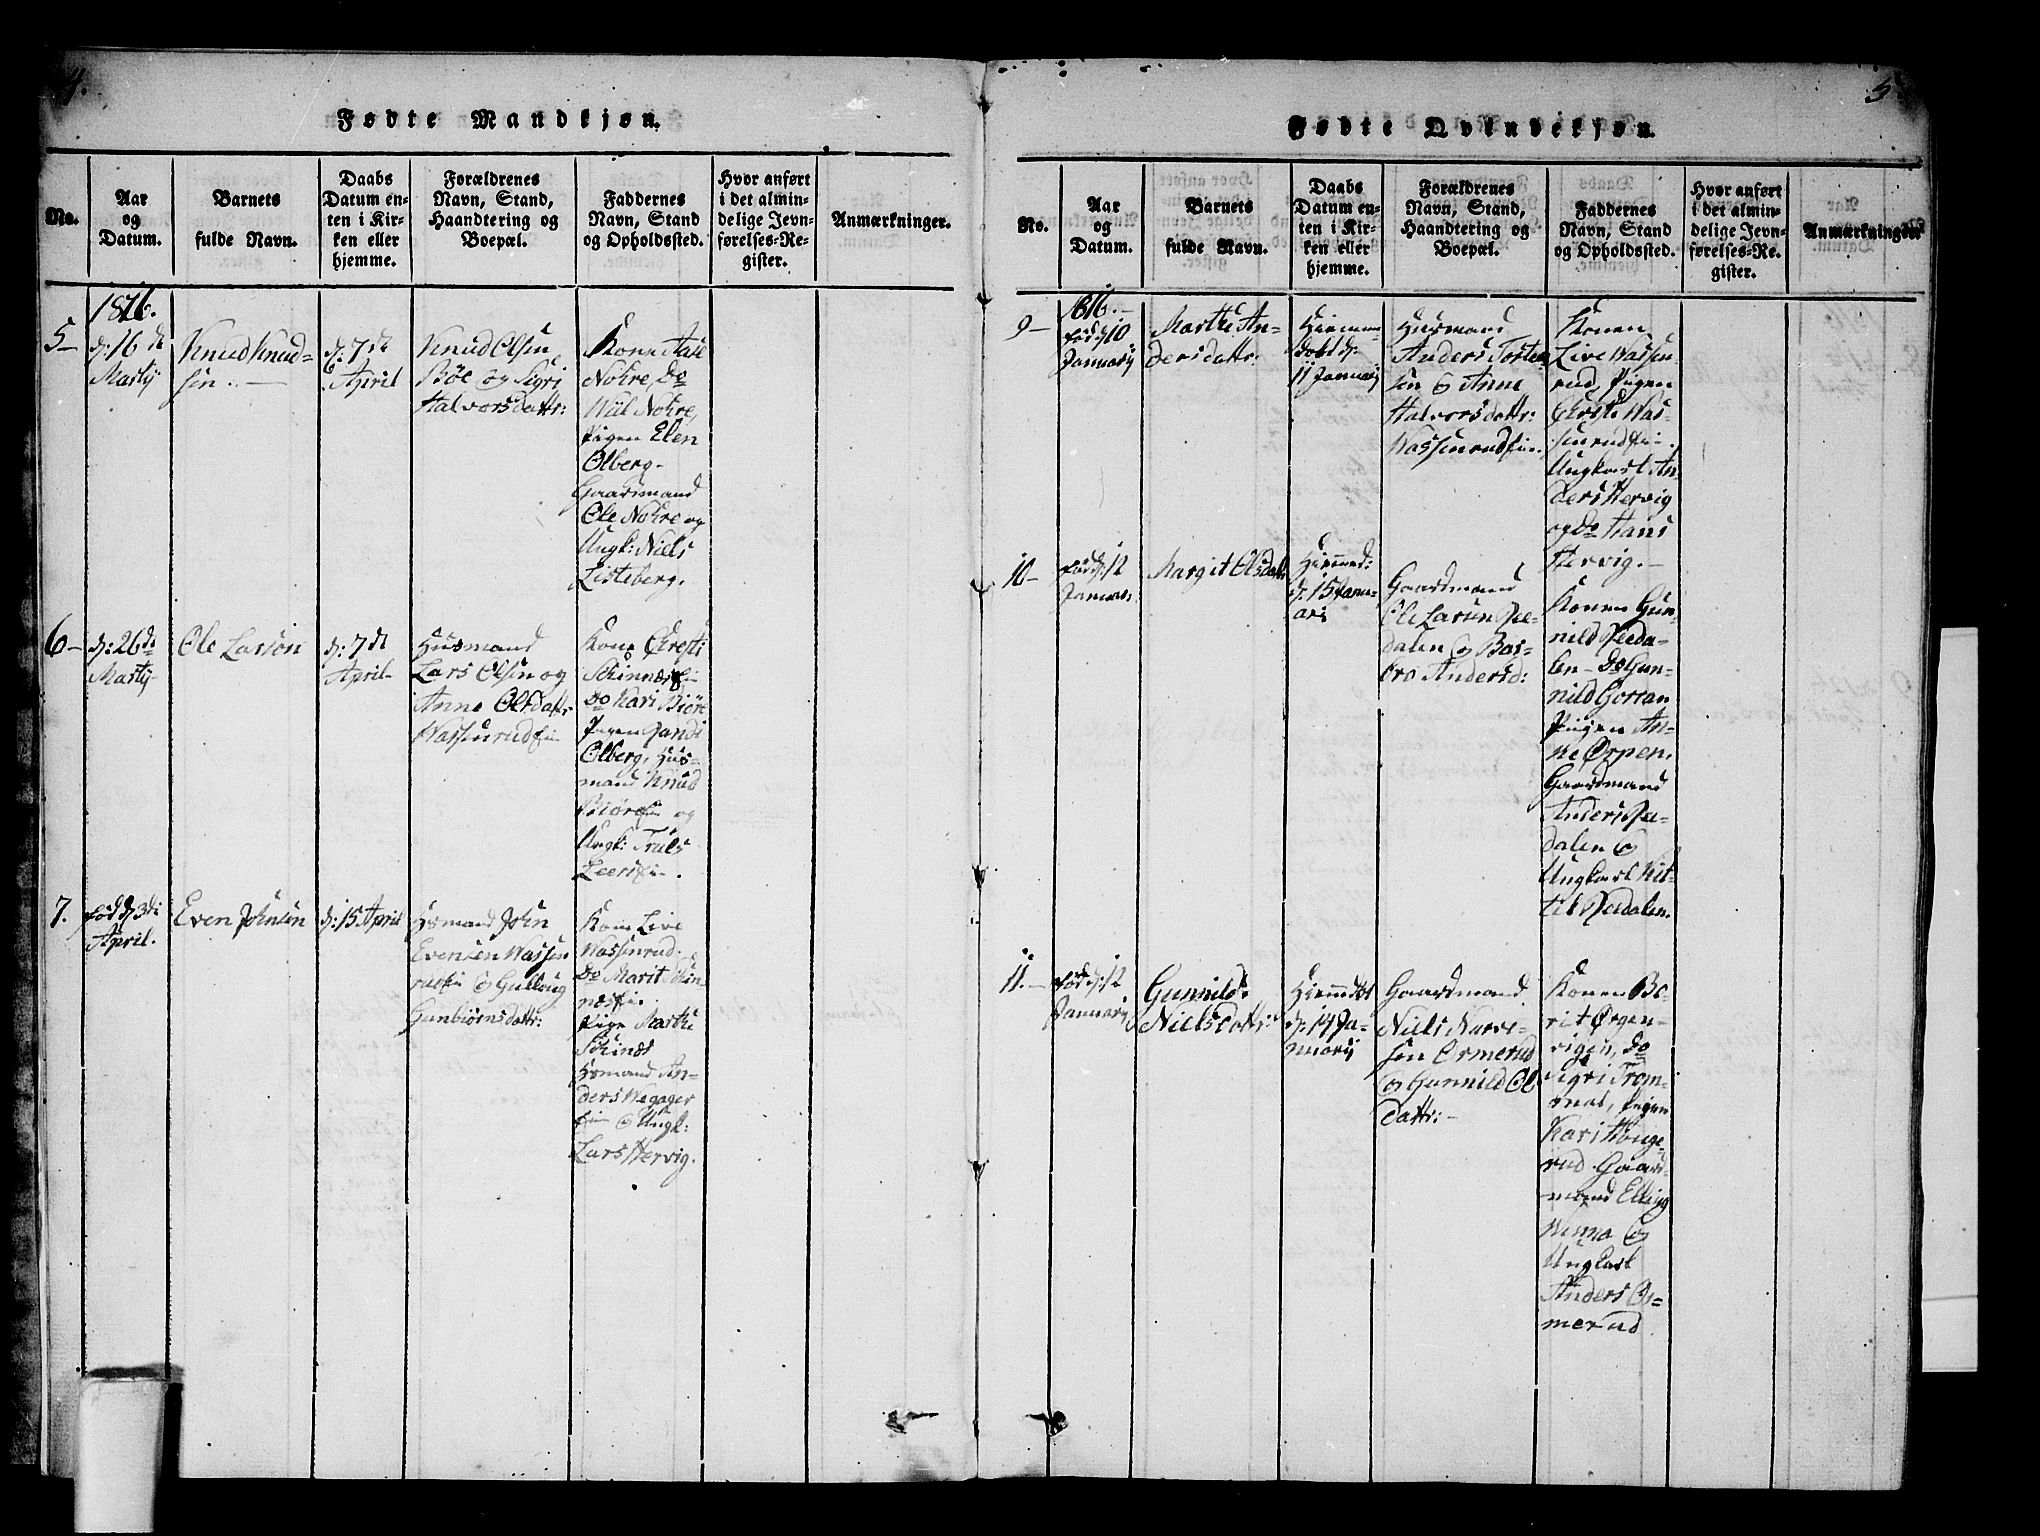 4.
Fødte Mandkjøn.
No.
Aar
og
Datum.
Barnets
fulde Navn.
Daabs
Datum en-
ten i Kir-
ken eller
hjemme.
Forældrenes
Navn, Stand,
Haandtering og
Boepæl.
Faddernes
Navn, Stand
og Opholdssted.
Hvor anført
i det almin-
delige Jevn-
førelses-Re-
gister.
Anmærkninger.
1816.
5-
d: 16 de
Martij
Knud Knud-
sen.
d: 7 de
April
Knud Olsen
Böe og Sigri
Halvorsdattr:
Kone Aase
Nohre, Do
Wiil Nohre,
Pigen Elen
Olberg-
Gaardmand
Ole Nohre og
Ungk: Niels
Listeberg.
6-
d: 26 de
Martij
Ole Larsön
d: 7 de
April-
Husmand
Lars Olsen og
Anne Olsdattr
Wassenrudei
Kone Chresti
Skinnes
Do Kari Biöre
Pigen Randi
Olberg, Hus-
mand Knud
Biöre og
Ungk: Truls
Leers
7.
föd d 3 di
April.
Even Johnsen
d: 15 April
Hsmand John
Evensen Wassen
rudei & Gulloug
Gunbiörnsdattr:
Kone Live
Wassenrud-
Do Marit Skin-
nes
Pige Marthe
Skines
Hsmand An-
ders Wegager
& Ungk:
Lars Hervig.
5
Fødte Qvindekjøn.
No.
Aar
og
Datum.
Barnets
fulde Navn.
Daabs
Datum en-
ten i Kir-
ken eller
hjemme.
Forældrenes
Navn, Stand,
Haandtering og
Boepæl.
Faddernes
Navn, Stand
og Opholdssted.
Hvor anført
i det almin-
delige Jevn-
førelses-Re-
gister.
Anmærkninger
1816.
9-
föd d 10
Januarij
Marthe An-
dersdattr:
Hiemme-
döbt d:
11 Januarij
Husmand
Anders Tosten
sen & Anne
Halvorsdattr:
Wassenrudei.
Konen
Live Wassen-
rud, Pigen
Chresti Was-
senrudei.
Ungkarl An-
ders Hervig
og Do Hans
Hervig.-
10-
föd d: 12
Januar:
Margit Olsdattr
Hiemmed:
d: 15 Janu-
ari
Gaardmand
Ole Larsen Vee-
dalen & Bar-
bro Andersd:
Konen Gun-
nild Veeda-
len- Do Gun-
nild Gorran
Pigen An-
ne Örpen,
Gaardmand
Anders Vee-
dalen &
Ungkarl Kit-
til Veedalen.
11.-
föd d: 12
Januarij
Gunnild
Nielsdattr:
Hiemmdöbt
d: 14 Ja-
nuarij
Gaardmand
Niels Narve-
sen Ormerud
& Gunnild Ol
dattr:-
Konen Be-
rit Örgen-
vigen, Do
Sigri From-
mal, Pigen
Kari Houge-
rud. Gaard-
mand Elling
Werma &
Ungkarl
Anders Or-
merud